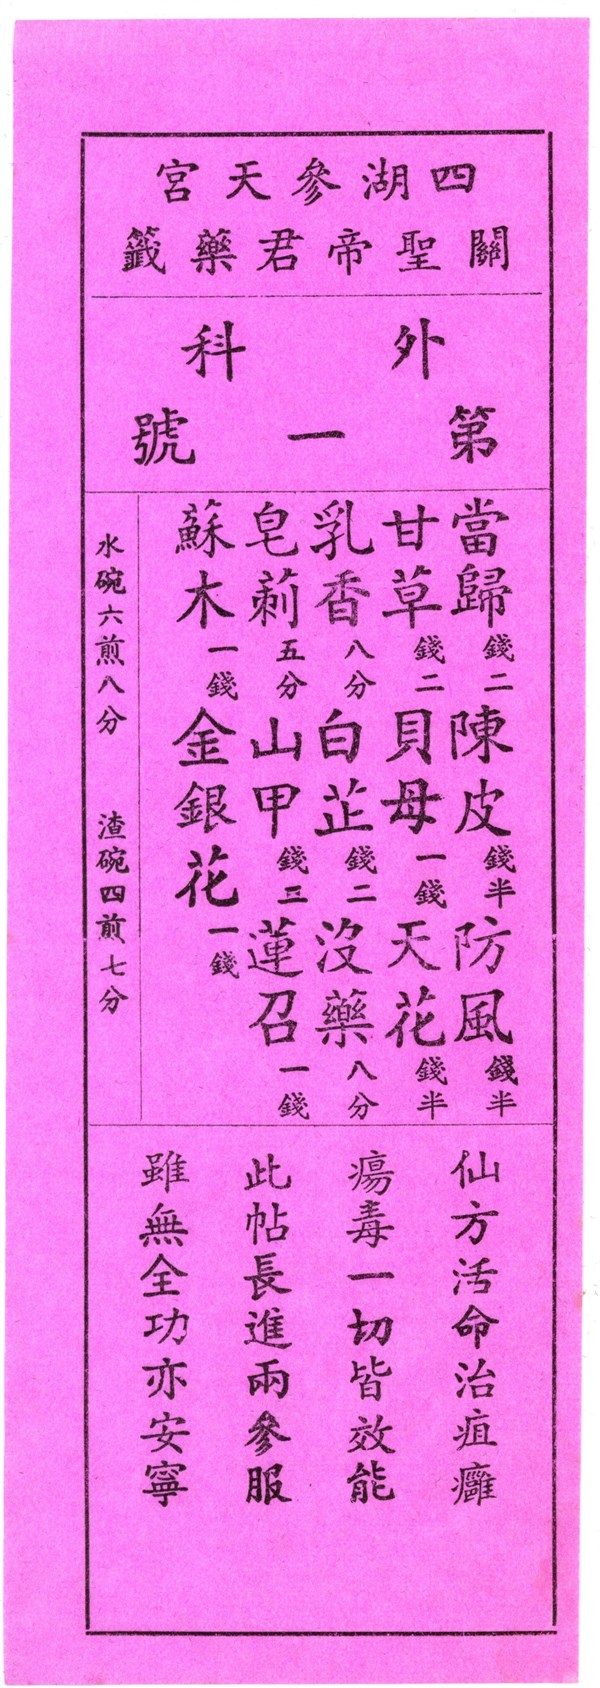 四湖參天宮
關聖帝君藥籤
外科
第一號
當歸錢二 陳皮錢半 防風錢半
甘草錢二 貝母一錢 天花錢半
乳香八分 白芷錢二 沒藥八分
皂莿五分 山甲錢三 蓮召一錢
蘇木一錢 金銀花一錢
水碗六煎八分 渣碗四煎七分
仙方活命治疽癰
瘍毒一切皆效能
此帖長進兩參服
雖無全功亦安寧